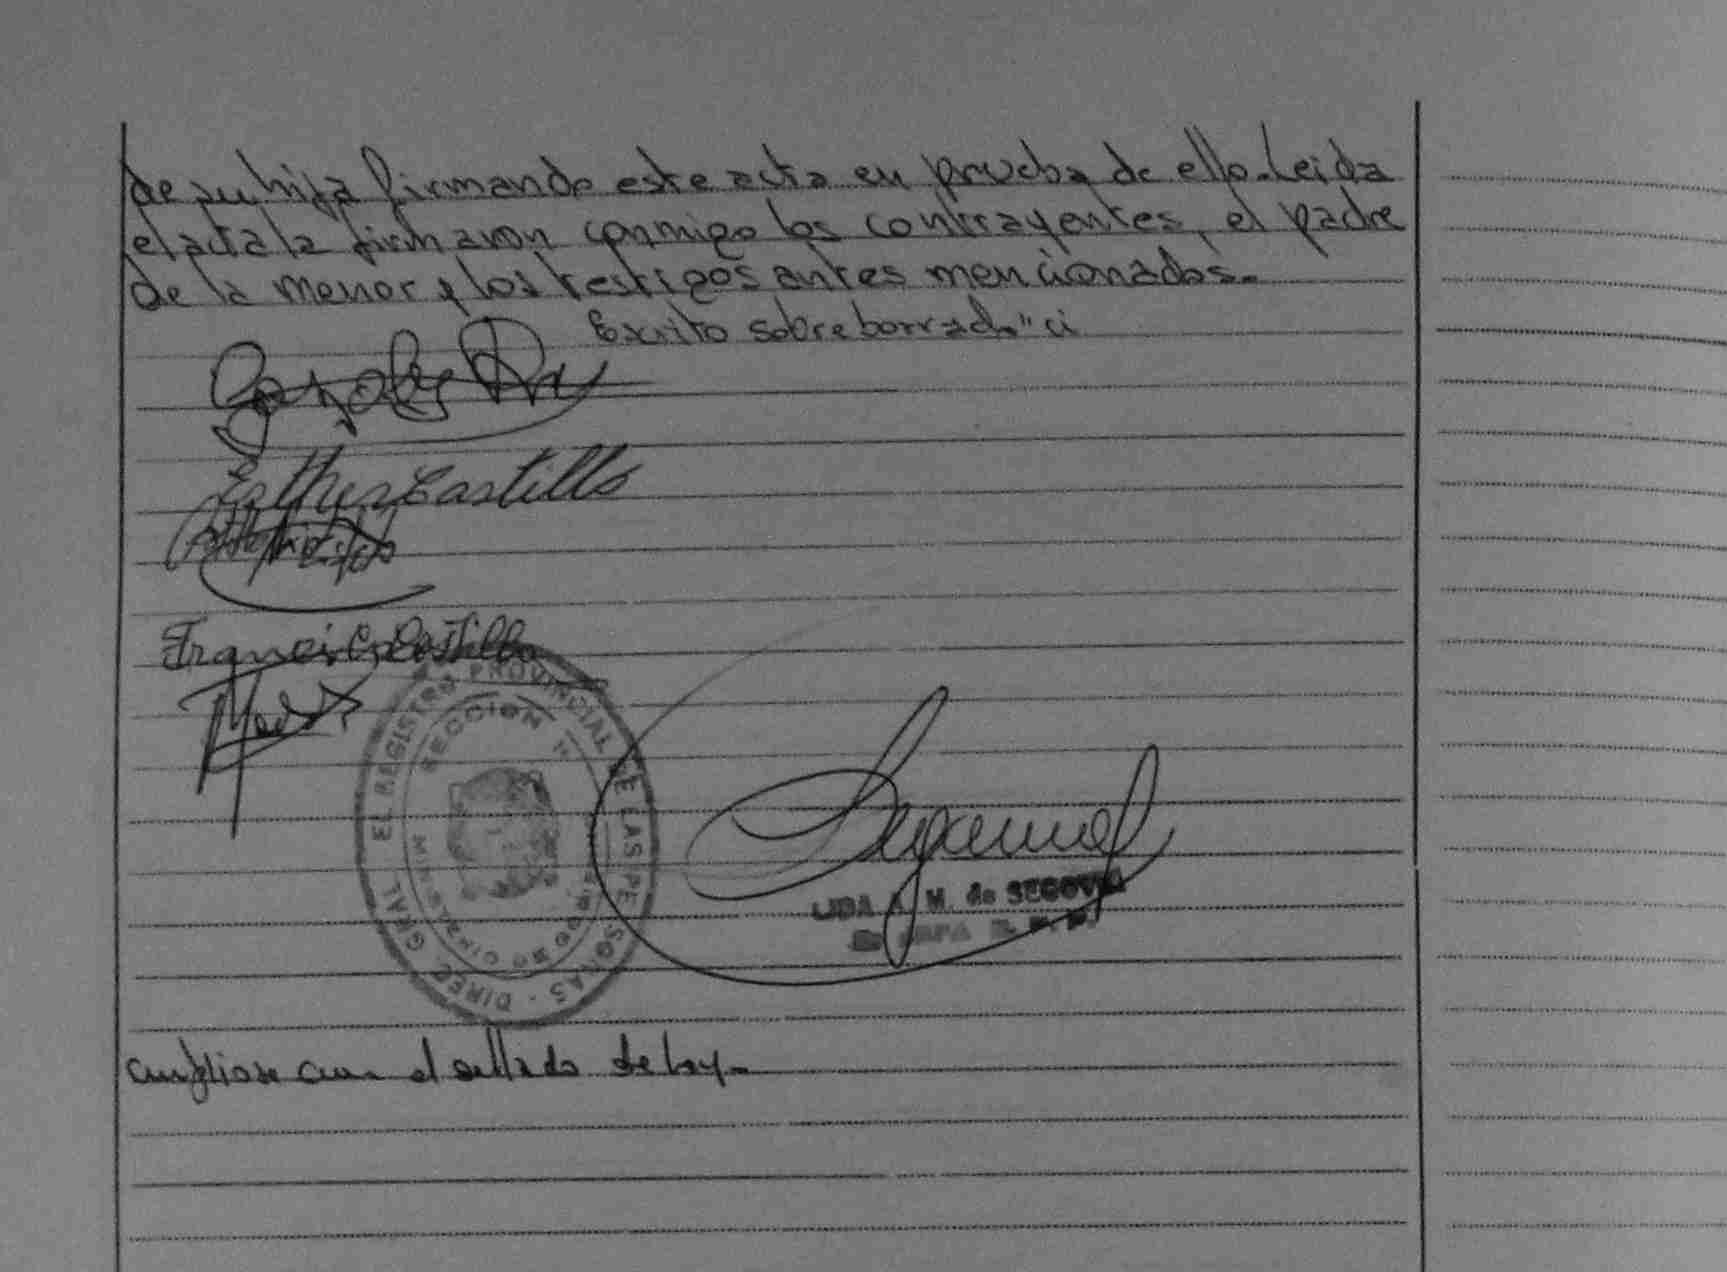 de su hija firmando este acta en prueba de ello. Leida
el acta la firmaron conmigo los contrayentes, el padre
de la menor y los testigos antes mencionados.-
Escrito sobre borrado "ci
Esther Castillo
Francisco Castillo
EL REGISTRO PROVINCIAL DE LAS PERSONAS - DIREC. GRAL.
SECCION
LIDA A. M. de SEGOVIA
cumpliose con el sellado de ley.-